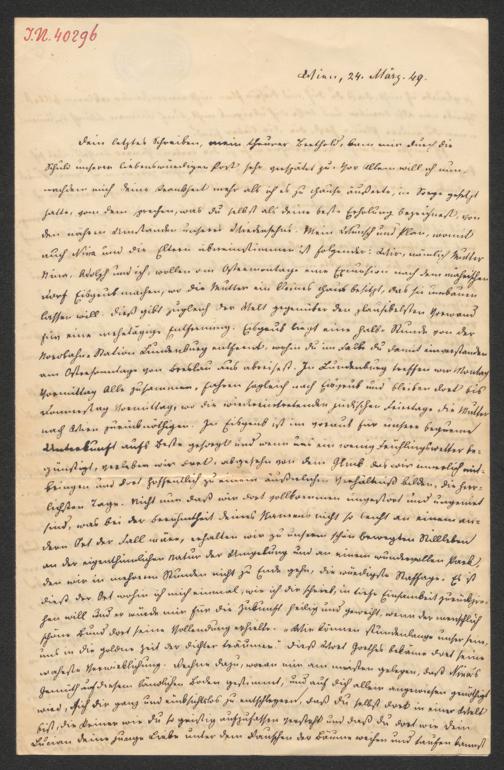 I.N. 40296
Wien, 24. März. 49.
Dein letztes Schreiben, mein theurer Berthold, kam mir durch die
Schuld unserer liebenswürdigen Post sehr verspätet zu. Vor Allem will ich nun,
nachdem mich deine Krankheit mehr als ich es zu Hause äußerte, in Sorge gesetzt
hatte, von dem sprechen, was du selbst als deine beste Erholung bezeichnest, von
den nähern Umständen unseres Wiedersehns. Mein Wunsch und Plan, womit
auch Nina und die Eltern übereinstimmen ist folgender: Wir, nämlich Mutter
Nina, Adolf und ich, wollen am Ostermontage eine Excursion nach dem mährischen
Dorf Eisgrub machen, wo die Mutter ein kleines Haus besitzt, das sie umbauen
lassen will. Dieß gibt zugleich der Welt gegenüber den plausibelsten Vorwand
für eine mehrtägige Entfernung. Eisgrub liegt eine halbe Stunde von der
Nordbahn Station Lundenburg entfernt, wohin du im Falle du damit einverstanden
am Ostersonntage von Breslau aus abreisest. In Lundenburg treffen wir Montag
Vormittag Alle zusammen, fahren sogleich nach Eisgrub und bleiben dort bis
Donnerstag Vormittag, wo die wiedereintretenden jüdischen Feiertage die Mutter
nach Wien zurücknöthigen. In Eisgrub ist im voraus für unsere bequeme
Unterkunft aufs Beste gesorgt und wenn uns ein wenig Frühlingswetter be-
günstigt, verleben wir dort, abgesehen von dem Glück das wir innerlich mit-
bringen und das hoffentlich zu einem äußerlichen Verhältniß bilden, die herr-
lichsten Tage. Nicht nur daß wir dort vollkommen ungestört und ungenirt
sind, was bei der Berühmtheit deines Namens nicht so leicht an einem an-
dern Ort der Fall wäre, erhalten wir zu unserm schön bewegten Stillleben
an der eigenthümlichen Natur der Umgebung und an einem wundervollen Park,
den wir in mehrern Stunden nicht zu Ende gehn, die würdigste Staffage. Es ist
dieß der Ort wohin ich mich einmal, wie ich dir schrieb, in tiefe Einsamkeit zurückzie-
hen will und er würde mir für die Zukunft heilig und geweiht, wenn der menschlich
schöne Bund dort seine Vollendung erhielte. „Wir können stundenlange unser sein,
uns in die goldne Zeit der Dichter träumen". Dieß Wort Goethes bekäme dort seine
wahrste Verwirklichung. Rechne dazu, woran mir am meisten gelegen, daß Nina's
Gemüth auf diesem ländlichen Boden gestimmt, und auf dich allein angewiesen genöthigt
wird, sich dir ganz und rückhaltlos zu entschleiern, daß du selbst dort in einer Welt
bist, die Keiner wie du so geistig aufzufassen versteht und daß du dort wie dein
Lucian deine junge Liebe unter dem Rauschen der Bäume weihen und taufen kannst